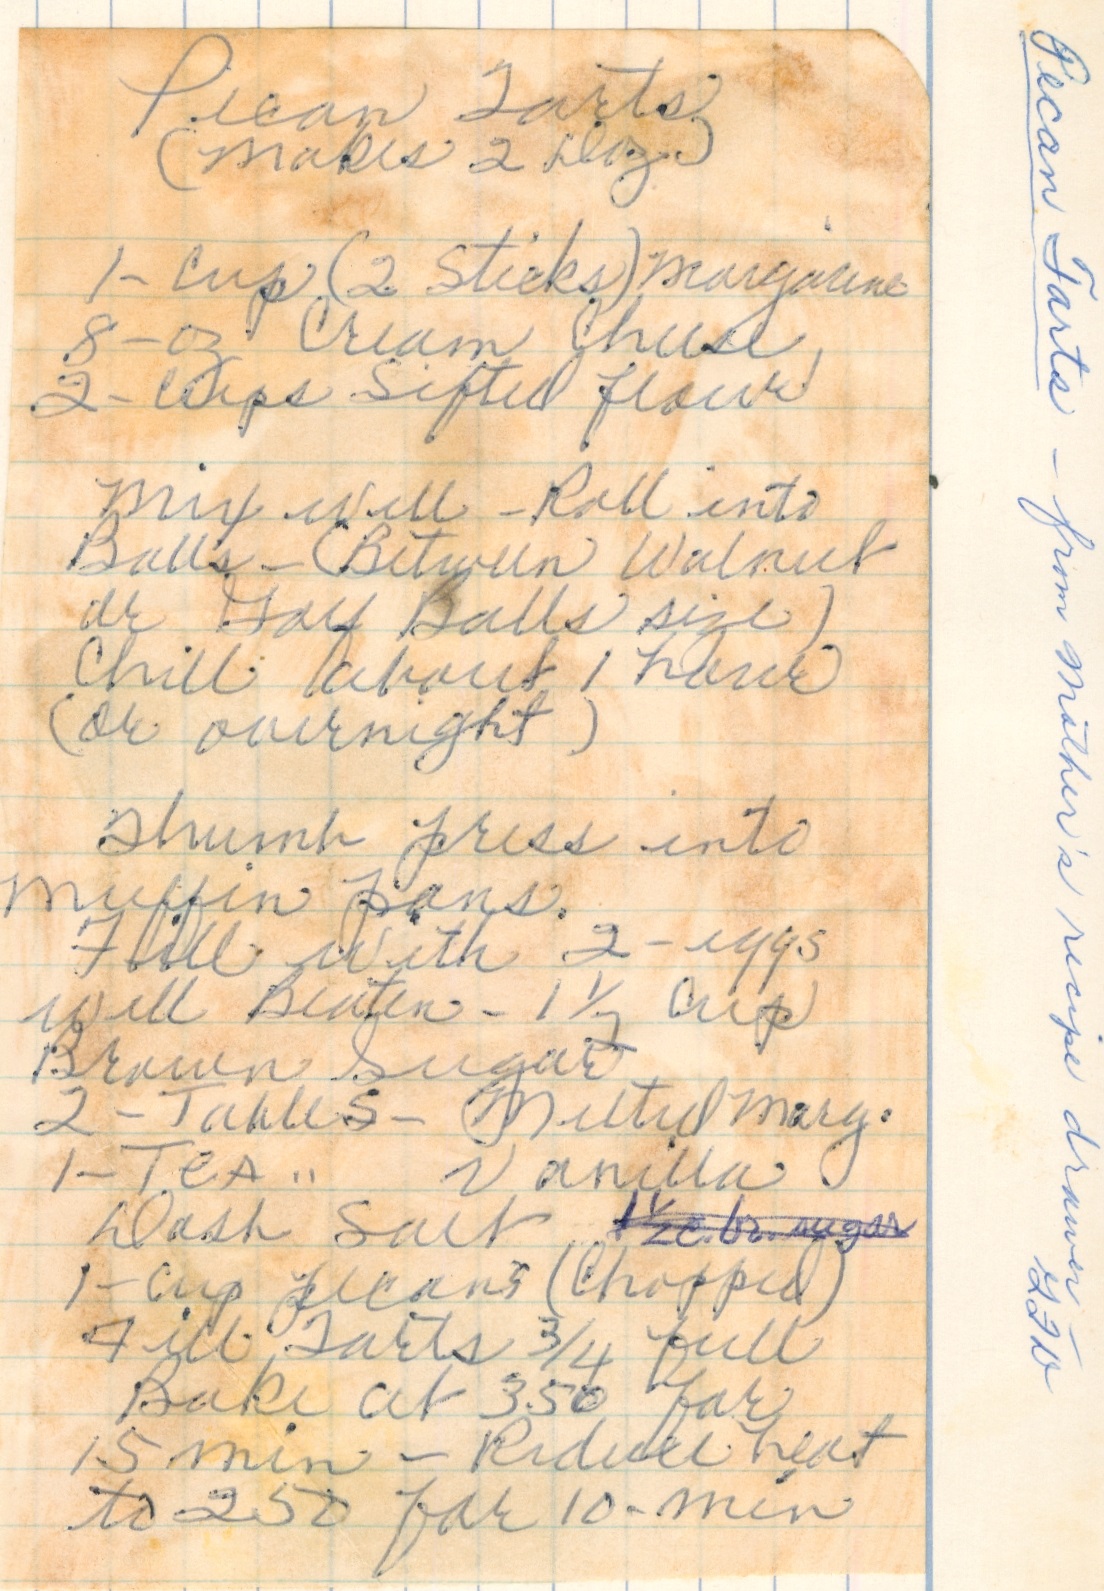 Pecan Tarts
(Makes 2 Doz.)
1- Cup (2 Sticks) Margarine
8-oz Cream Cheese,
2- Cups Sifted flour
Mix well - Roll into
Balls - (Between Walnut
or Golf Balls size)
Chill about 1 hour
(or overnight)
Thumb press into
Muffin pans.
Fill with 2 - eggs
well Beaten - 1 1/2 Cup
Brown Sugar
2 - Tables - Melted Marg.
1- Tea .. Vanilla
Dash Salt 1 1/2 c. br. sugar
1- Cup pecans (Chopped)
Fill Tarts 3/4 full
Bake at 350 for
15 min - Reduce heat
to 250 for 10- min
Pecan Tarts - from Mother's recipe drawer -